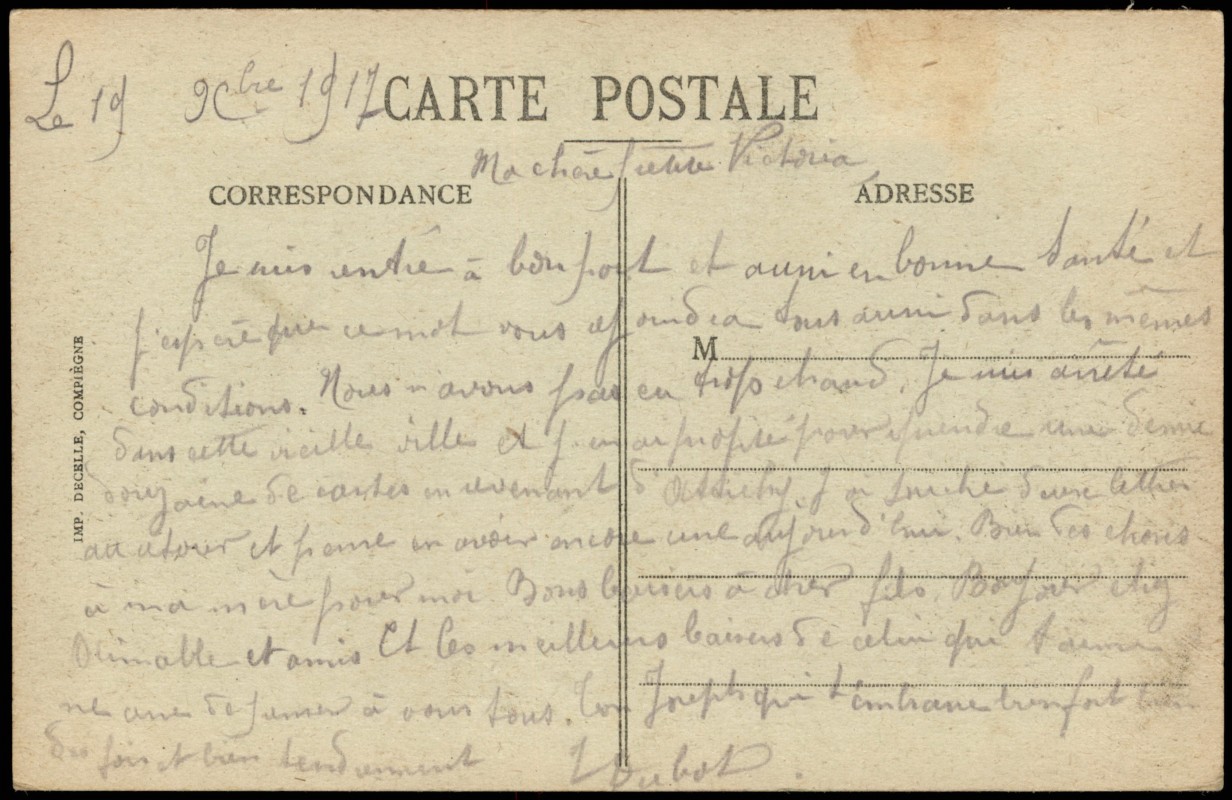 Le 19 9bre 1917
CARTE POSTALE
Ma chère petite Victoria
CORRESPONDANCE
ADRESSE
Je suis entré à bon port et aussi en bonne santé et
j'espère que ce mot vous joindra tous aussi dans les mêmes
M
conditions. Nous n'avons pas eu trop chaud. Je suis arrêté
dans cette vieille ville et j'en ai profité pour prendre une demie
douzaine de cartes en revenant d'Attichy. J'ai deux lettres
au retour et pense en avoir encore une aujourd'hui. Bien des choses
à ma mère pour moi. Bons baisers à cher fils. Bonjour chez
Delmable et amis Et les meilleurs baisers de celui qui t'aime
de penser à vous tous. Ton Joseph qui t'embrasse bien fort bien
des fois et bien tendrement J Dubot.
IMP. DECELLE, COMPIÈGNE